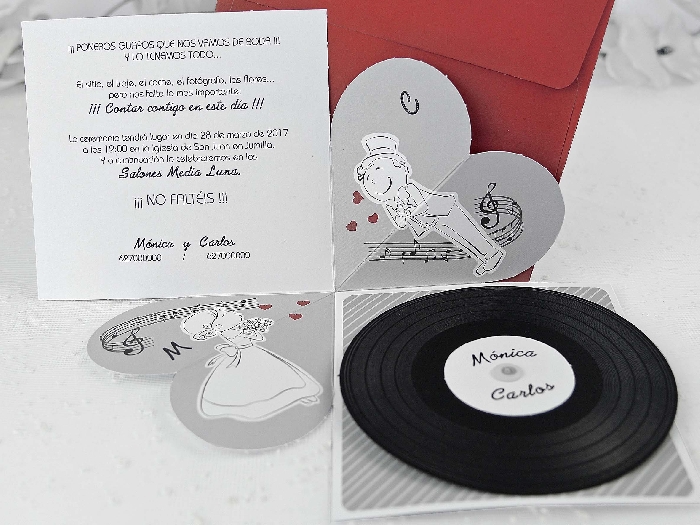 ¡¡¡ PONEROS GUAPOS QUE NOS VAMOS DE BODA !!!
Y LO TENEMOS TODO...
El sitio, el viaje, el coche, el fotógrafo, las flores...
pero nos falta lo más importante:
¡¡¡ Contar contigo en este día !!!
La ceremonia tendrá lugar en día 28 de marzo de 2017
a las 19:00 en la Iglesia de San Juan en Jumilla.
Y a continuación lo celebraremos en los
Salones Media Luna.
¡¡¡ NO FALTÉIS !!!
Mónica y Carlos
/
C
M
Mónica
Carlos